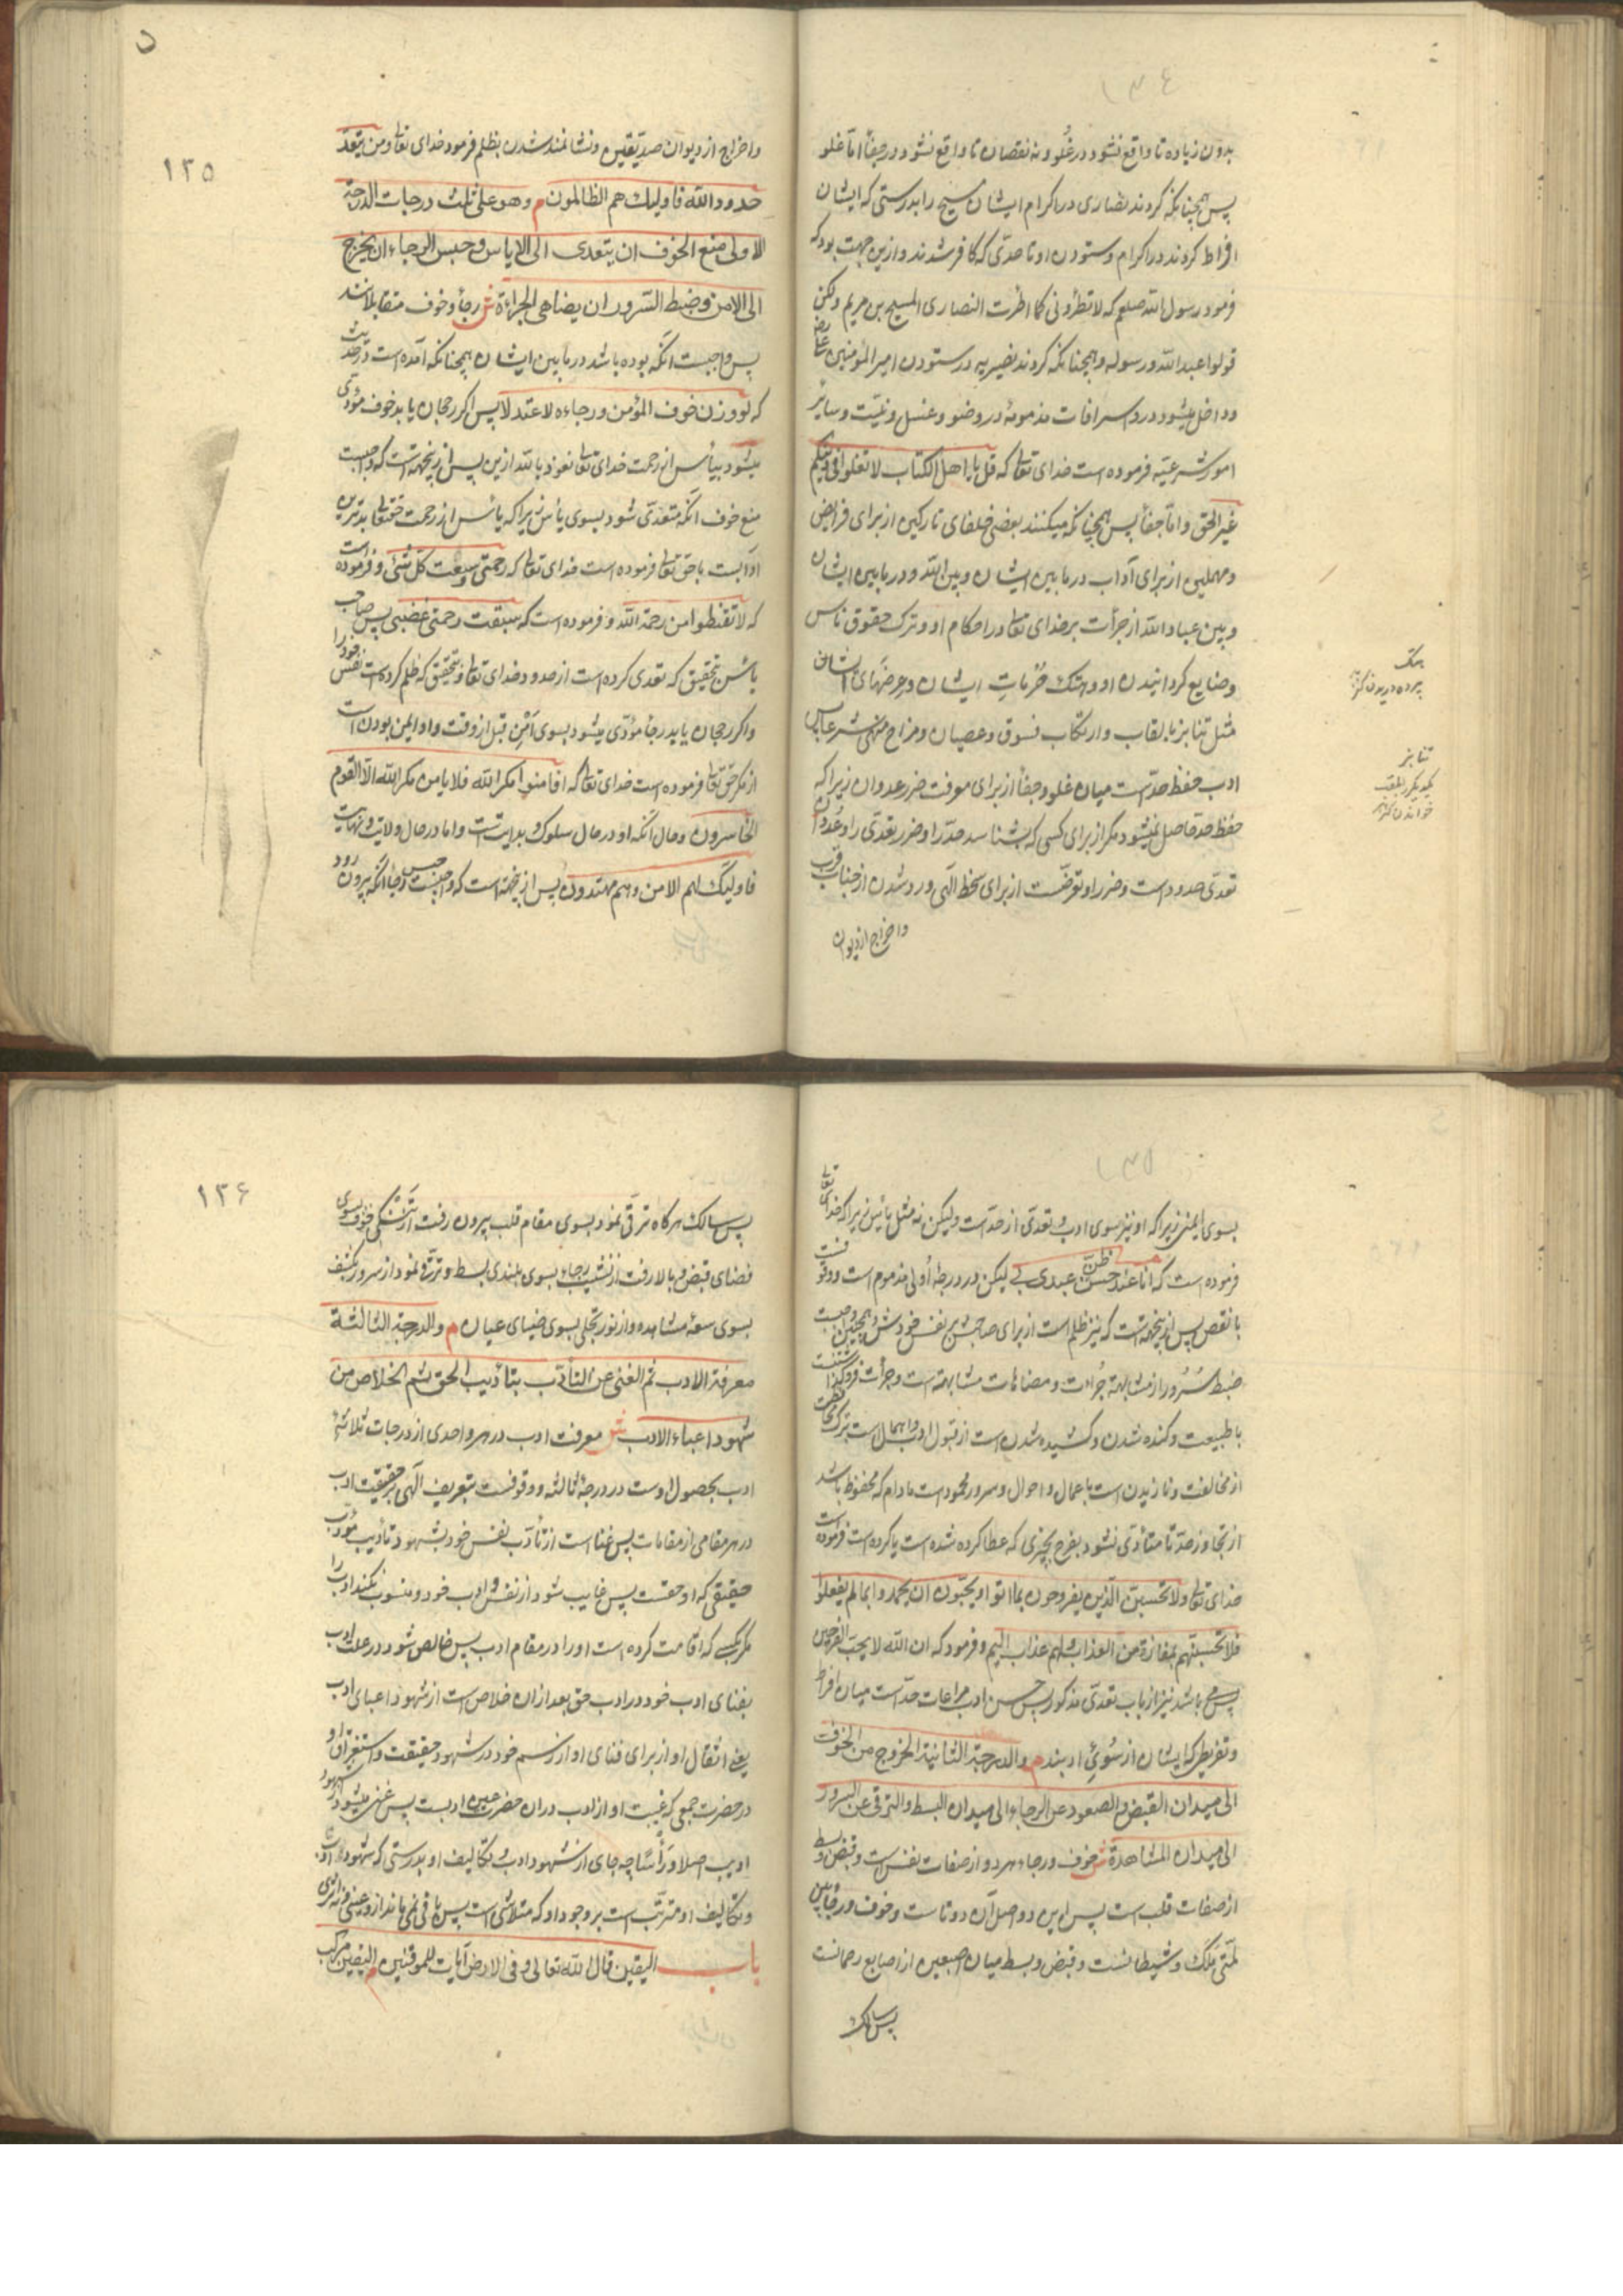 بدون زیاده تا واقع نشود در غلو و نه نقصان تا واقع نشود در جفاً امّا غلو
پس همچنانکه کردند نصاری در اکرام ایشان مسیح را بدرستی که ایشان
افراط کردند در اکرام و ستودن او تا حدّی که کافر شدند و ازین جهت بود که
فرمود رسول الله صلعم که لا تطرونی کما اطرت النصاری المسیح بن مریم ولکن
قولوا عبدالله و رسوله و همچنانکه کردند نصیریه در ستودن امیر المؤمنین علی رضه
و داخل میشود درو اسرافات مذمومه در وضو و غسل و نیّت و سایر
امور شرعیّه فرموده است خدای تعالی که قل یا اهل الکتاب لا تغلوا فی دینکم
غیر الحق و امّا جفاً پس همچنانکه میکنند بعضی خلفای تارکین از برای فرایض
و مهملین از برای آداب در مابین ایشان و بین الله و در مابین ایشان
و بین عباد الله از جرأت بر خدای تعالی در احکام او و ترک حقوق ناس
و ضایع گردانیدن او و هتک حُرُماتِ ایشان و عِرضهای ایشان
مثل تنابز بالقاب و ارتکاب فسوق و عصیان و مزاح منهی شرعا پس
ادب حفظ حدّ است میان غلو و جفاً از برای معرفت ضرر عدوان زیرا که
حفظ حد حاصل نمیشود مگر از برای کسی که بشناسد حدّ را و ضرر تعدّی را و عُدوان
تعدّی حدود است و ضرر او تعرّضست از برای سخط الهی و رد شدن از جناب قرب
و اخراج از دیوان
هتک
پرده دریدن
تنابز
یکدیگر را بلقب
خواندن
۱۳۵
و اخراج از دیوان صدیّقین و نشانمند شدن بظلم فرمود خدای تعالی و من یتعدّ
حدود الله فاولیک هم الظالمون م و هو علی ثلث درجات الدرجة
الاولی منع الخوف ان یتعدی الی الایاس و حبس الرجاء ان یخرج
الی الامن و ضبط السّرور ان یضاهی الجرأة ش رجاً و خوف متقابلانند
پس واجبست انکه بوده باشد در مابین ایشان همچنانکه آمده است در حدیث
که لو وزن خوف المؤمن و رجاءه لاعتدلا پس اگر رجحان یابد خوف مؤدّی
میشود بیأس از رحمت خدای تعالی نعوذ بالله ازین پس ازینجهتست که واجبست
منع خوف انکه متعدّی شود بسوی یأس زیرا که یأس از رحمت حقتعالی بدترین
ادابست با حق تعالی فرموده است خدای تعالی که رحمتی وسعت کل شئ و فرموده است
که لا تقنطوا من رحمة الله و فرموده است که سبقت رحمتی غضبی پس صاحب
یأس بتحقیق که تعدی کرده است از حدود خدای تعالی و بتحقیق که ظلم کرده است نفس خود را
و اگر رجحان یابد رجاً مؤدّی میشود بسوی اَمْنِ قبل از وقت و او ایمن بودن است
از مکر حق تعالی فرموده است خدای تعالی که افامنوا مکر الله فلا یامن مکر الله الّا القوم
الخاسرون و حال انکه او در حال سلوک و بدایتست و اما در حال ولایت و نهایت
فاولیک لهم الامن و هم مهتدون پس ازینجهتست که واجبست حبس رجا انکه بیرون رود
بسوی ایمنی زیرا که او نیز سوی ادب و تعدّی از حدّ است و لیکن نه مثل یأس زیرا که خدای تعالی
فرموده است که انا عند حسن ظنّ عبدی بی لیکن در درجهٔ اُولی مذموم است و
با نقص پس ازینجهتست که نیز ظلم است از برای صاحبش بر نفس خودش و همچنین واجبست
ضبط سُرُور از مشابهة جُراءت و مضاهات مشابهتست و جرأت
با طبیعت و کنده شدن و کشیده شدن است از قبول ادب و اهمال است بترک
از مخالفت و نازیدن است باعمال و احوال و سرور محمود است مادام که محفوظ باشد
از تجاوز حدّ تا متأدّی نشود بفرح بچیزی که عطا کرده شده است یا کرده است فرموده است
خدای تعالی و لا تحسبنّ الّذین یفرحون بما اتوا و یحبّون ان یحمدوا بما لم یفعلوا
فلا تحسبنّهم بمفازة من العذاب و لهم عذاب الیم و فرمود که ان الله لا یحبّ الفرحین
پس می باشد نیز از باب تعدّی مذکور پس حسن ادب مراعات حدّ است میان افراط
و تفریط که ایشان از سُوئِ ادبند م و الدرجة الثانیة الخروج من الخوف
الی میدان القبض و الصعود عن الرجاء الی میدان البسط و الترقی عن السرور
الی میدان المشاهدة ش خوف و رجاء هر دو از صفات نفس است و قبض و بسط
از صفات قلب است پس این دو اصل آن دوتاست و خوف و رجا بین
لمّتی مَلَک و شیطانست و قبض و بسط میان اصبعین از اصابع رحمانست
پس سالک
۱۳۶
پس سالک هر گاه ترقّی نمود بسوی مقام قلب بیرون رفت از تَنْکی خوف بسوی
فضای قبض و بالا رفت از نشیب رجاء بسوی بلندی بسط و ترقّی نمود از سرور بکشف
بسوی سعهٔ مشاهده و از نور تجلی بسوی ضیای عیان م و الدرجة الثالثة
معرفة الادب ثم الغنی عن التأدّب بتأدیب الحق ثم الخلاص من
شهود اعباء الادب ش معرفت ادب در هر واحدی از درجات ثلاثهٔ
ادب بحصول اوست در درجهٔ ثالثه و وقوفست بتعریف الهی بر حقیقت ادب
در هر مقامی از مقامات پس غنا است از تأدّب نفس خود بشهود تأدیب مؤدّب
حقیقی که او حقست پس غایب شود از نفس و ادب خود و منسوب نکند ادب را
مگر بکسی که اقامت کرده است او را در مقام ادب پس خالص شود در علت ادب
بفنای ادب خود در ادب حق بعد از آن خلاص است از شهود اعبای ادب
یعنی اثقال او از برای فنای او از رسم خود در شهود حقیقت و استغراق او
در حضرت جمعی که غیبت او از ادب دران حضرت عین ادبست پس غنی میشود از شهود
ادیب اصلا و رأسًا چه جای از شهود ادب و تکالیف او بدرستی که شهود ادب
و تکالیف او مترتّب است بر وجود او که متلاشی است پس باقی نمی ماند ازو عینی و نه اثری
باب الیقین قال الله تعالی و فی الارض آیات للموقنین م الیقین مرکب